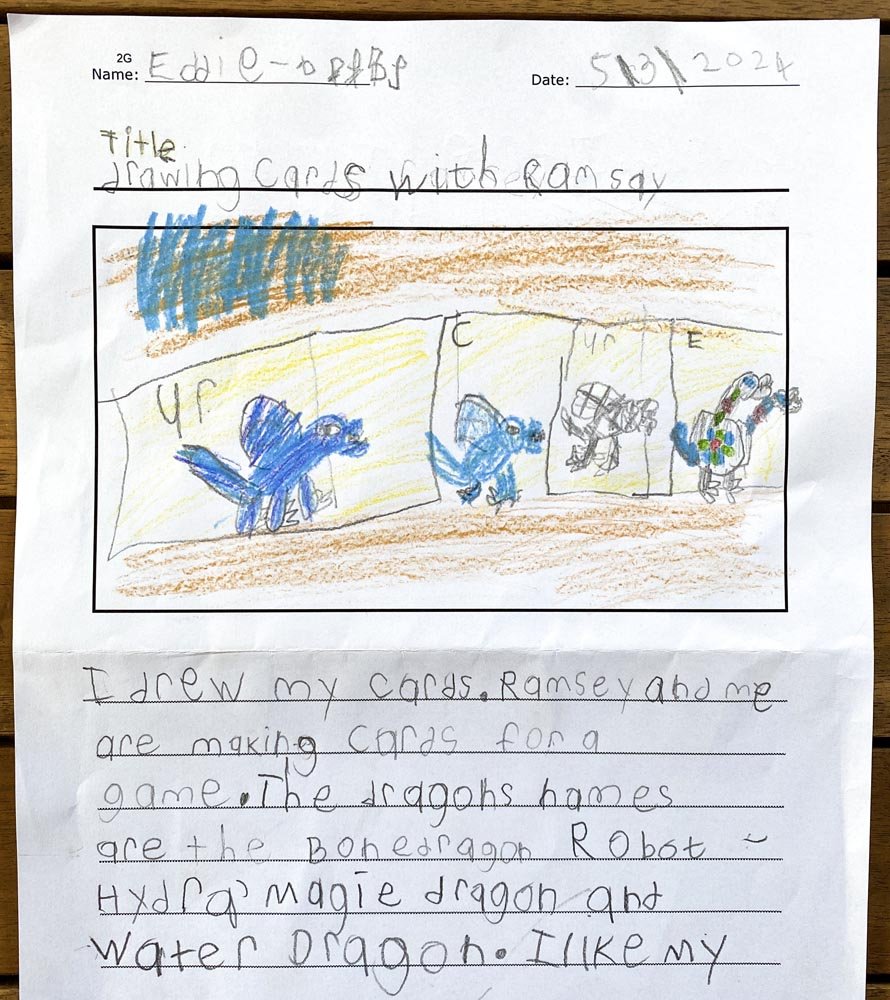 2G
Name: Eddie
Date: 5\3\2024
Title
drawing cards with Ramsay
Ur
C
Ur
E
I drew my cards. Ramsey and me
are making cards for a
game. The dragons names
are the Bonedragon Robot -
Hydra magie dragon and
Water Dragon. I like my